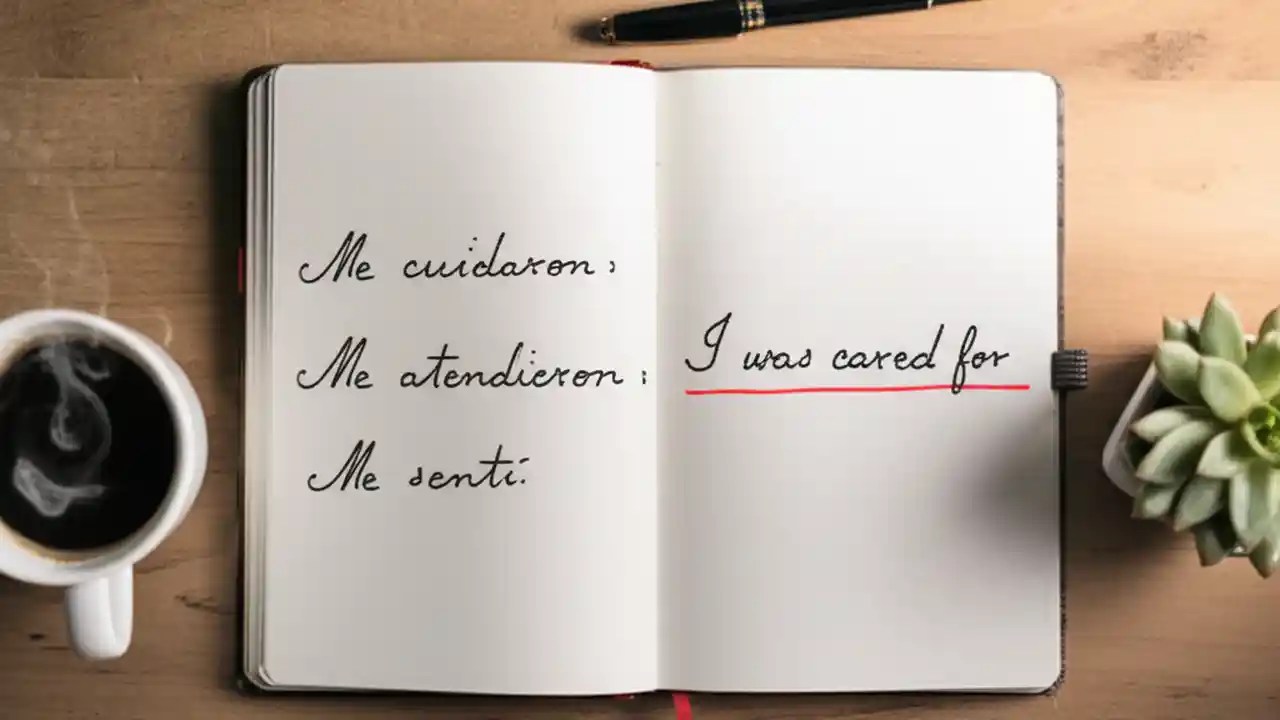 Me cuidaron:
Me atendieron:
Me sentí:
I was cared for